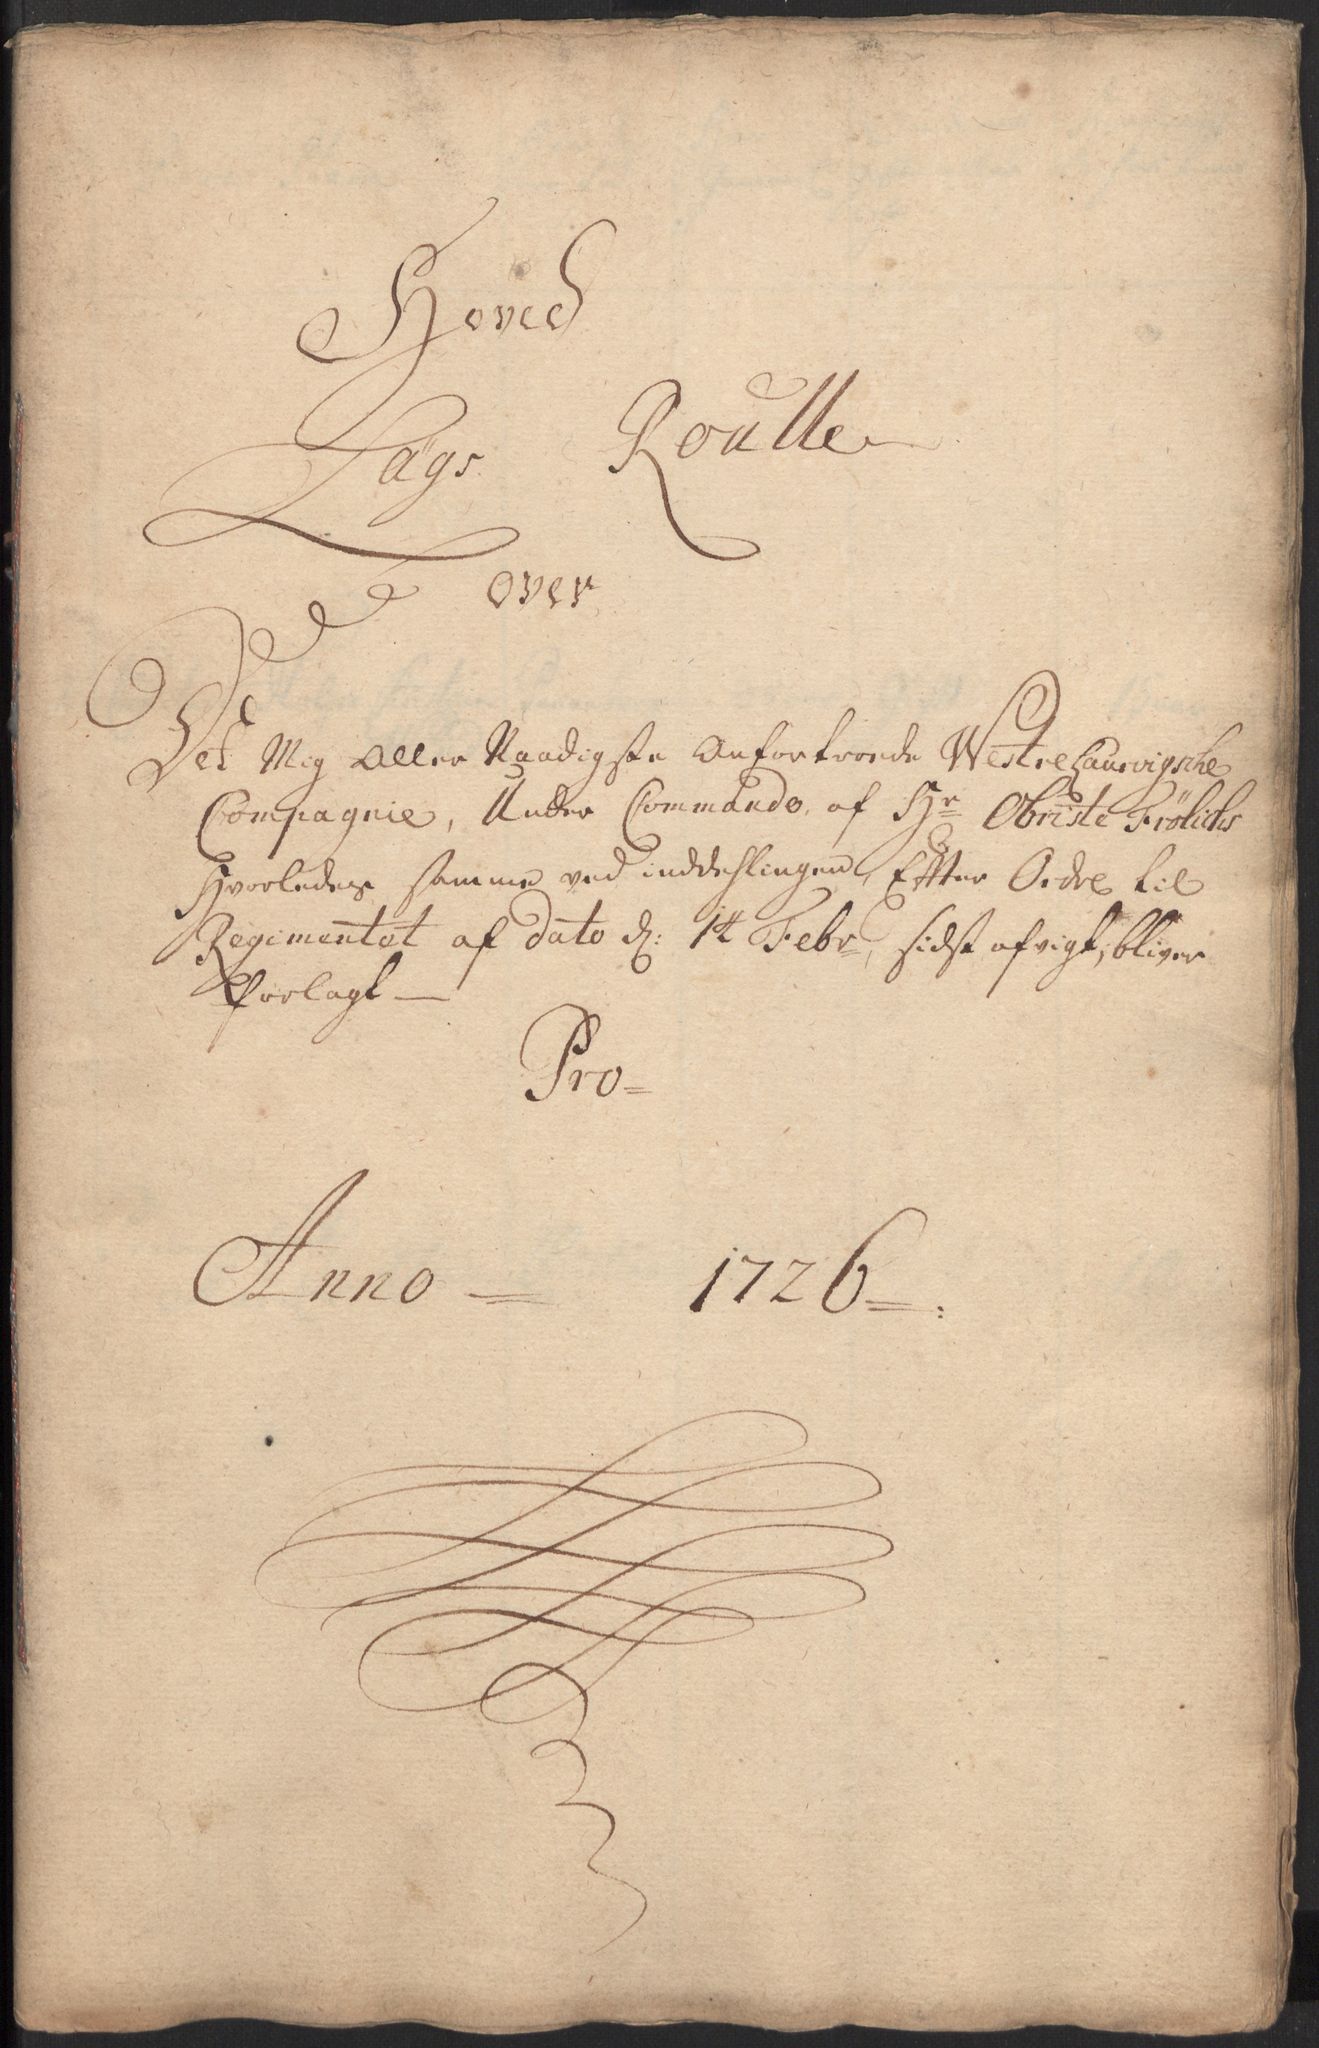 Hoved
Lägs Roulle
over
Det Mig Aller Naadigste Anfortroede Westre Laurvigsche
Compagnie, Under Commando, af Hr Obriste Frölichs
Hvorledes samme ved inddehlingen, Efter Ordre til
Regimentet af dato d: 14 Febr, sidst afvigt, bliver
Forlagt —
Pro=
Anno = 1726 =: